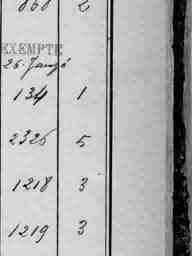 868 2
EXEMPTE
134 1
2326 5
1218 3
1219 3